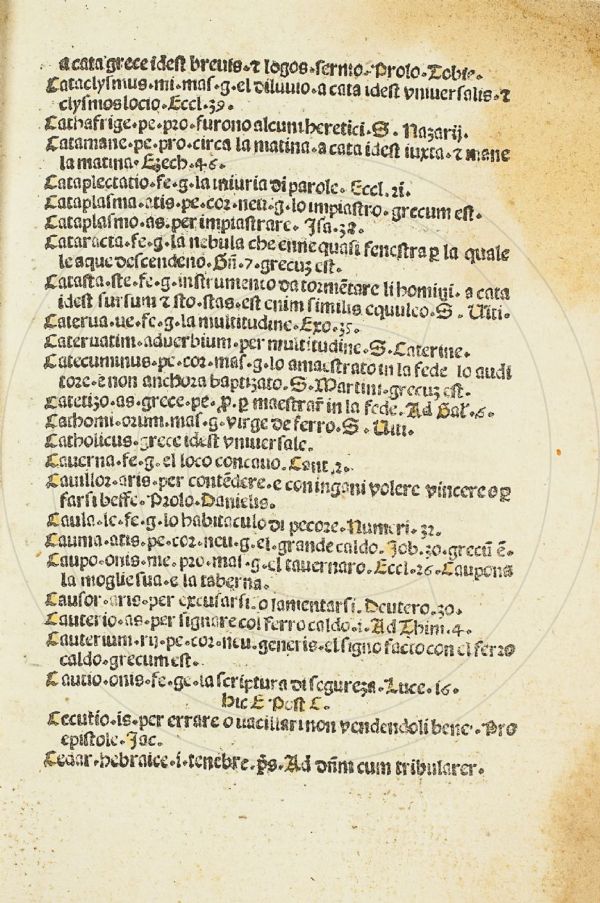 a cata grece idest breuis·⁊ logos·sermo·Prolo·Tobie·
Cataclysmus·mi·mas·g·el diluuio·a cata idest vniuersalis·⁊
clysmos locio·Eccl·39·
Cathafrige·pe·pro·furono alcuni heretici·S· Nazarij·
Catamane·pe·pro·circa la matina·a cata idest iuxta·⁊ mane
la matina· Ezech·46·
Cataplectatio·fe·g·la iniuria di parole· Eccl·21·
Cataplasma·atis·pe·cor·neu·g·lo impiastro·grecum est·
Cataplasmo·as·per impiastrare· Isa·38·
Cataracta·fe·g·la nebula che enne quasi fenestra ꝑ la quale
le aque descendeno·Gñ·7·grecuꝫ est·
Catasta·ste·fe·g·instrumento da tormētare li homini·a cata
idest sursum ⁊ sto·stas·est enim similis equuleo·S· Uiti·
Caterua·ue·fe·g·la multitudine·Exo·35·
Cateruatim·aduerbium·per multitudine·S·Caterine·
Catecuminus·pe·cor·mas·g·lo amaestrato in la fede lo audi
tore·e non anchora baptizato·S·Martini·grecuꝫ est·
Catetizo·as·grece·pe·ꝓ·ꝑ maestrar̄ in la fede·Ad Gal·6·
Cathomi·orum·mas·g·virge de ferro·S· Uiti·
Catholicus·grece idest vniuersale·
Cauerna·fe·g·el loco concauo·Cant·2·
Cauillor·aris·per contēdere·e con ingani volere vincere o ꝑ
farsi beffe·Prolo·Danielis·
Caula·le·fe·g·lo habitaculo di pecore·Numeri·32·
Cauma·atis·pe·cor·neu·g·el grande caldo·Job·30·grecū ē·
Caupo·onis·me·pro·mal·g·el tauernaro·Eccl·26·Caupona
la moglie sua·e la taberna·
Causor·aris·per excusarsi·o lamentarsi·Deutero·30·
Cauterio·as·per signare col ferro caldo·1·Ad Thim·4·
Cauterium·rij·pe·cor·neu·generis·el signo facto con el ferro
caldo·grecum est·
Cautio·onis·fe·ge·la scriptura di segureza·Luce·16·
Hic E Post C·
Cecutio·is·per errare o uacillari non vendendoli bene·Pro
epistole·Jac·
Cedar·hebraice·i·tenebre·ps·Ad dñm cum tribularer·